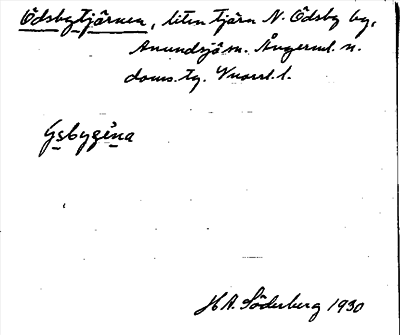 Ödsbytjärnen, liten tjärn N. Ödsby by,
Anundsjö sn. Ångerml. n.
doms. tg. Vnorrl. l.
H A. Söderberg 1930